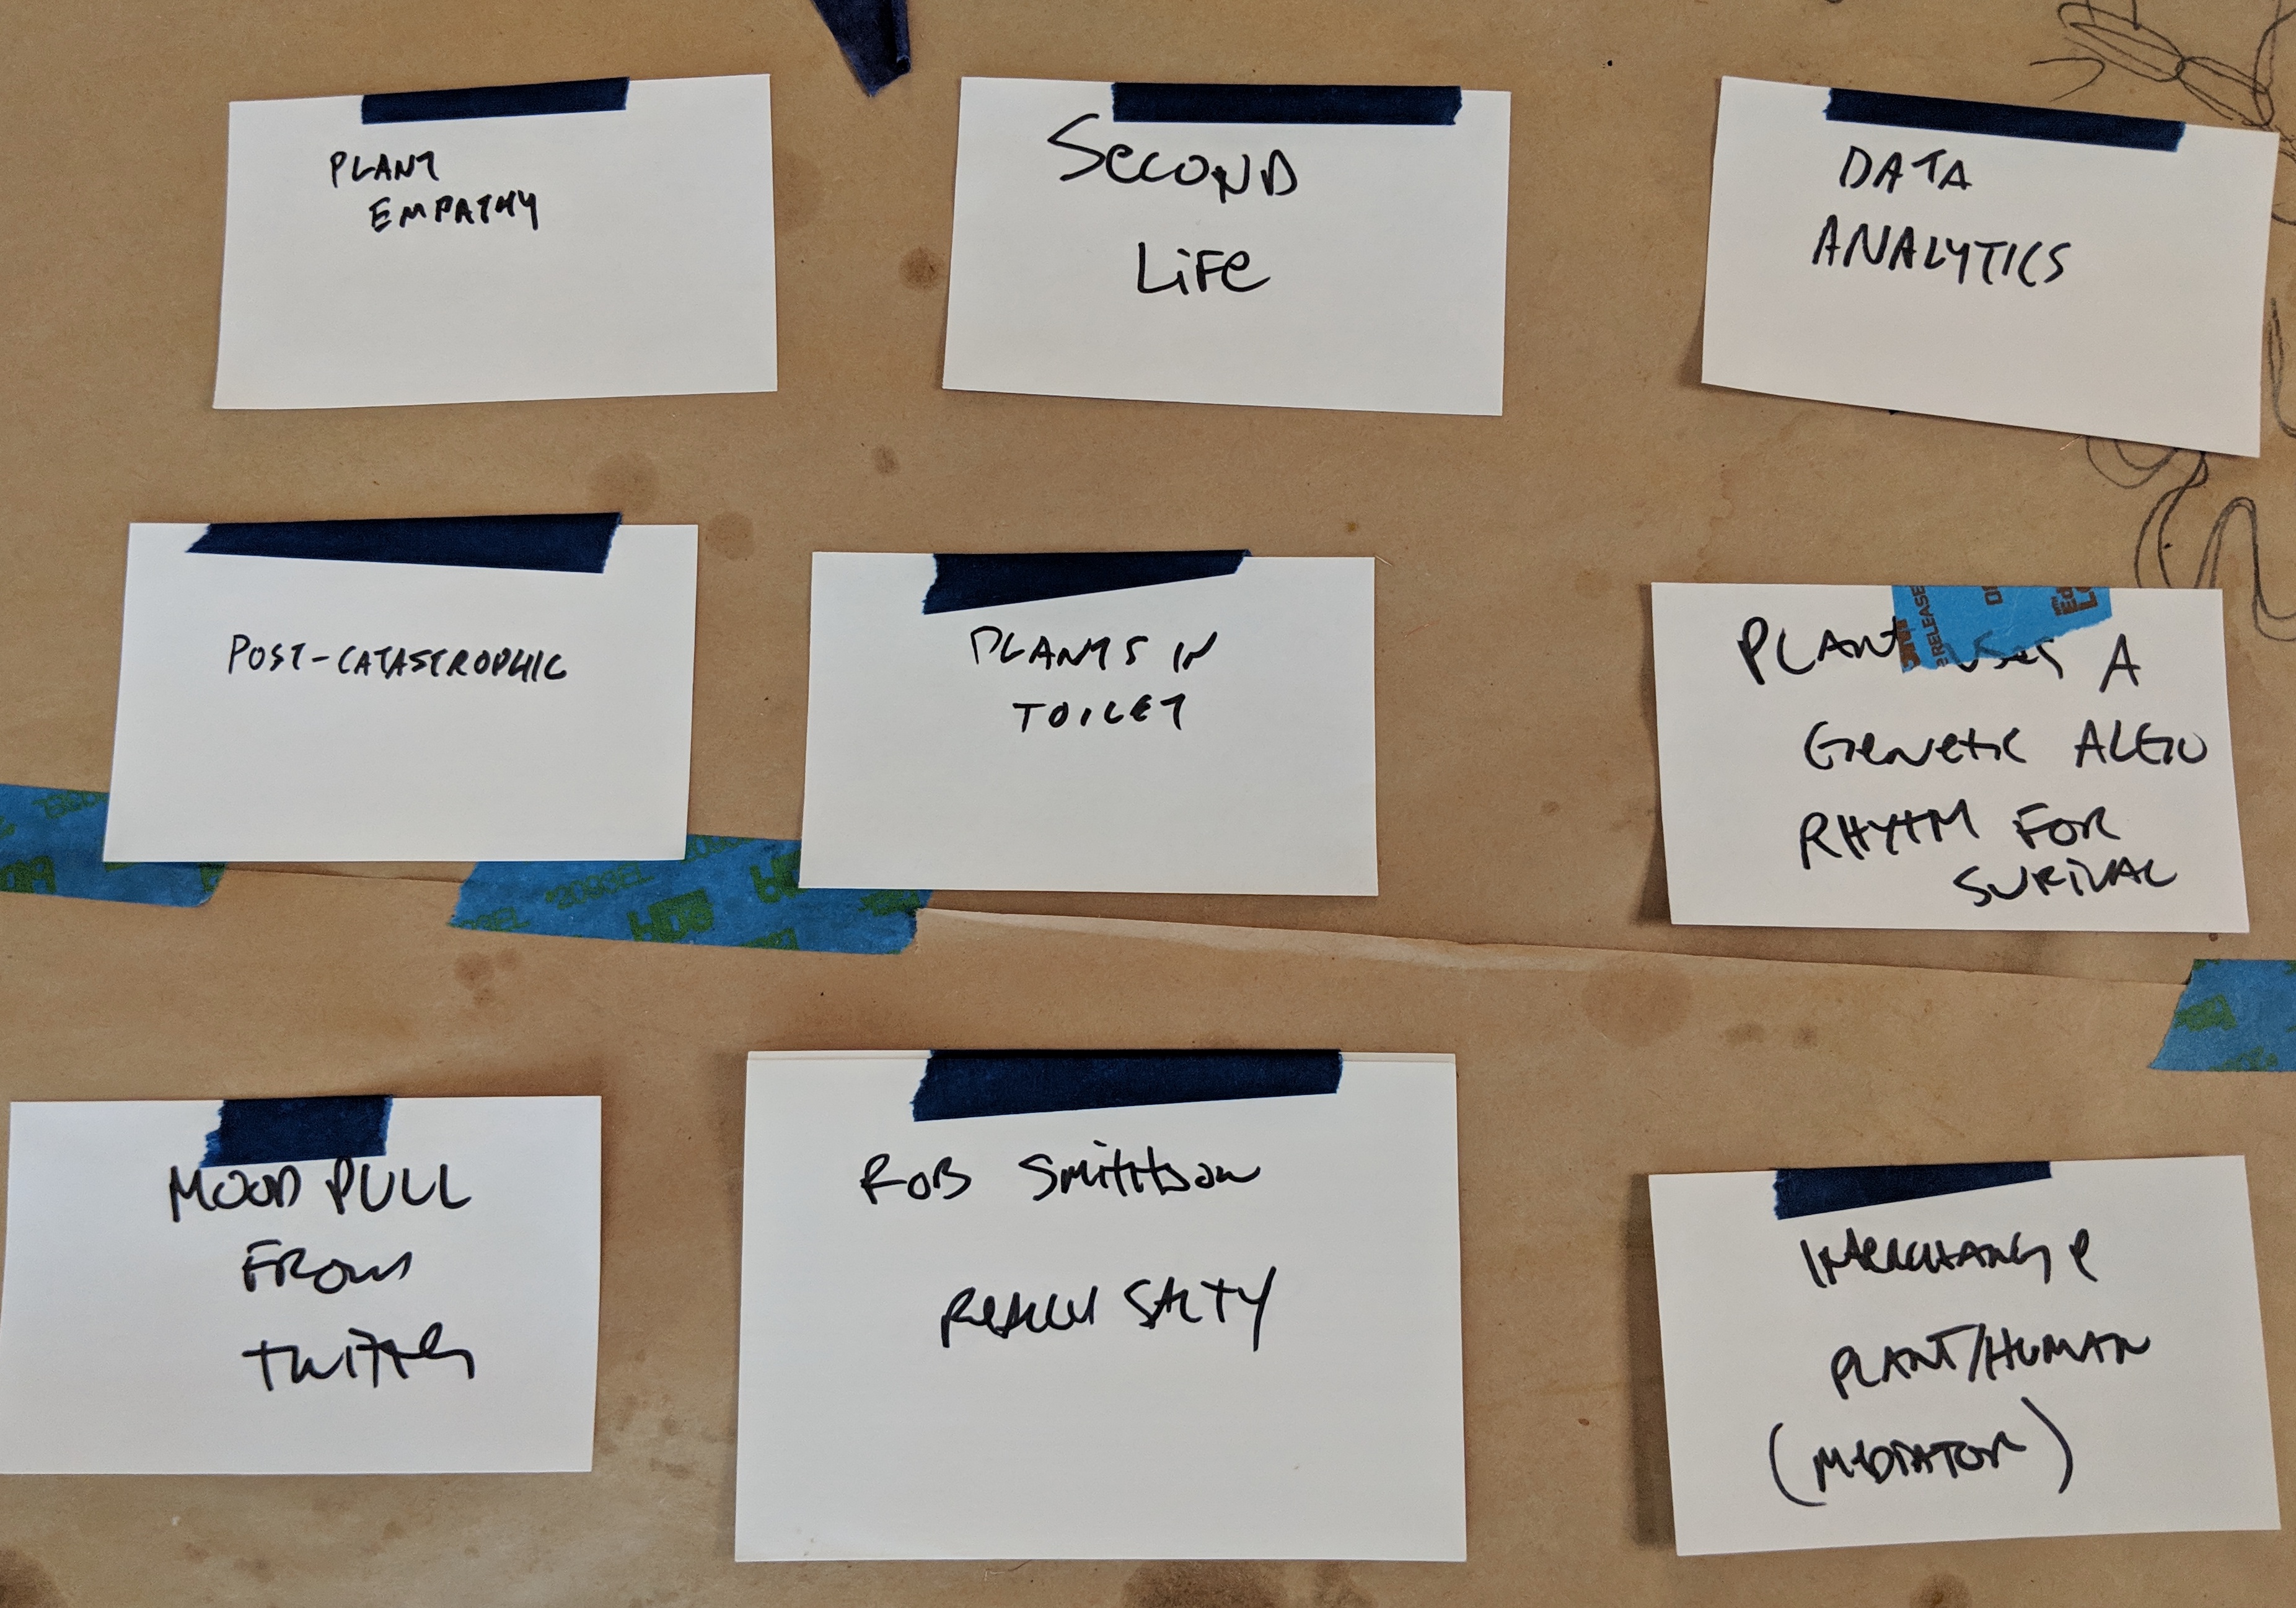 PLANT
EMPATHY
SECOND
LiFe
DATA
ANALYTICS
POST-CATASTROPHIC
PLANTS IN
TOILET
PLANT uses A
Genetic ALGO
RHYTHM FOR
SURIVAL
MOOD PULL
FROM
twitter
ROB Smithson
REALLY SALTY
INTERCHANGE
PLANT/HUMAN
(MEDIATOR)
RELEASE